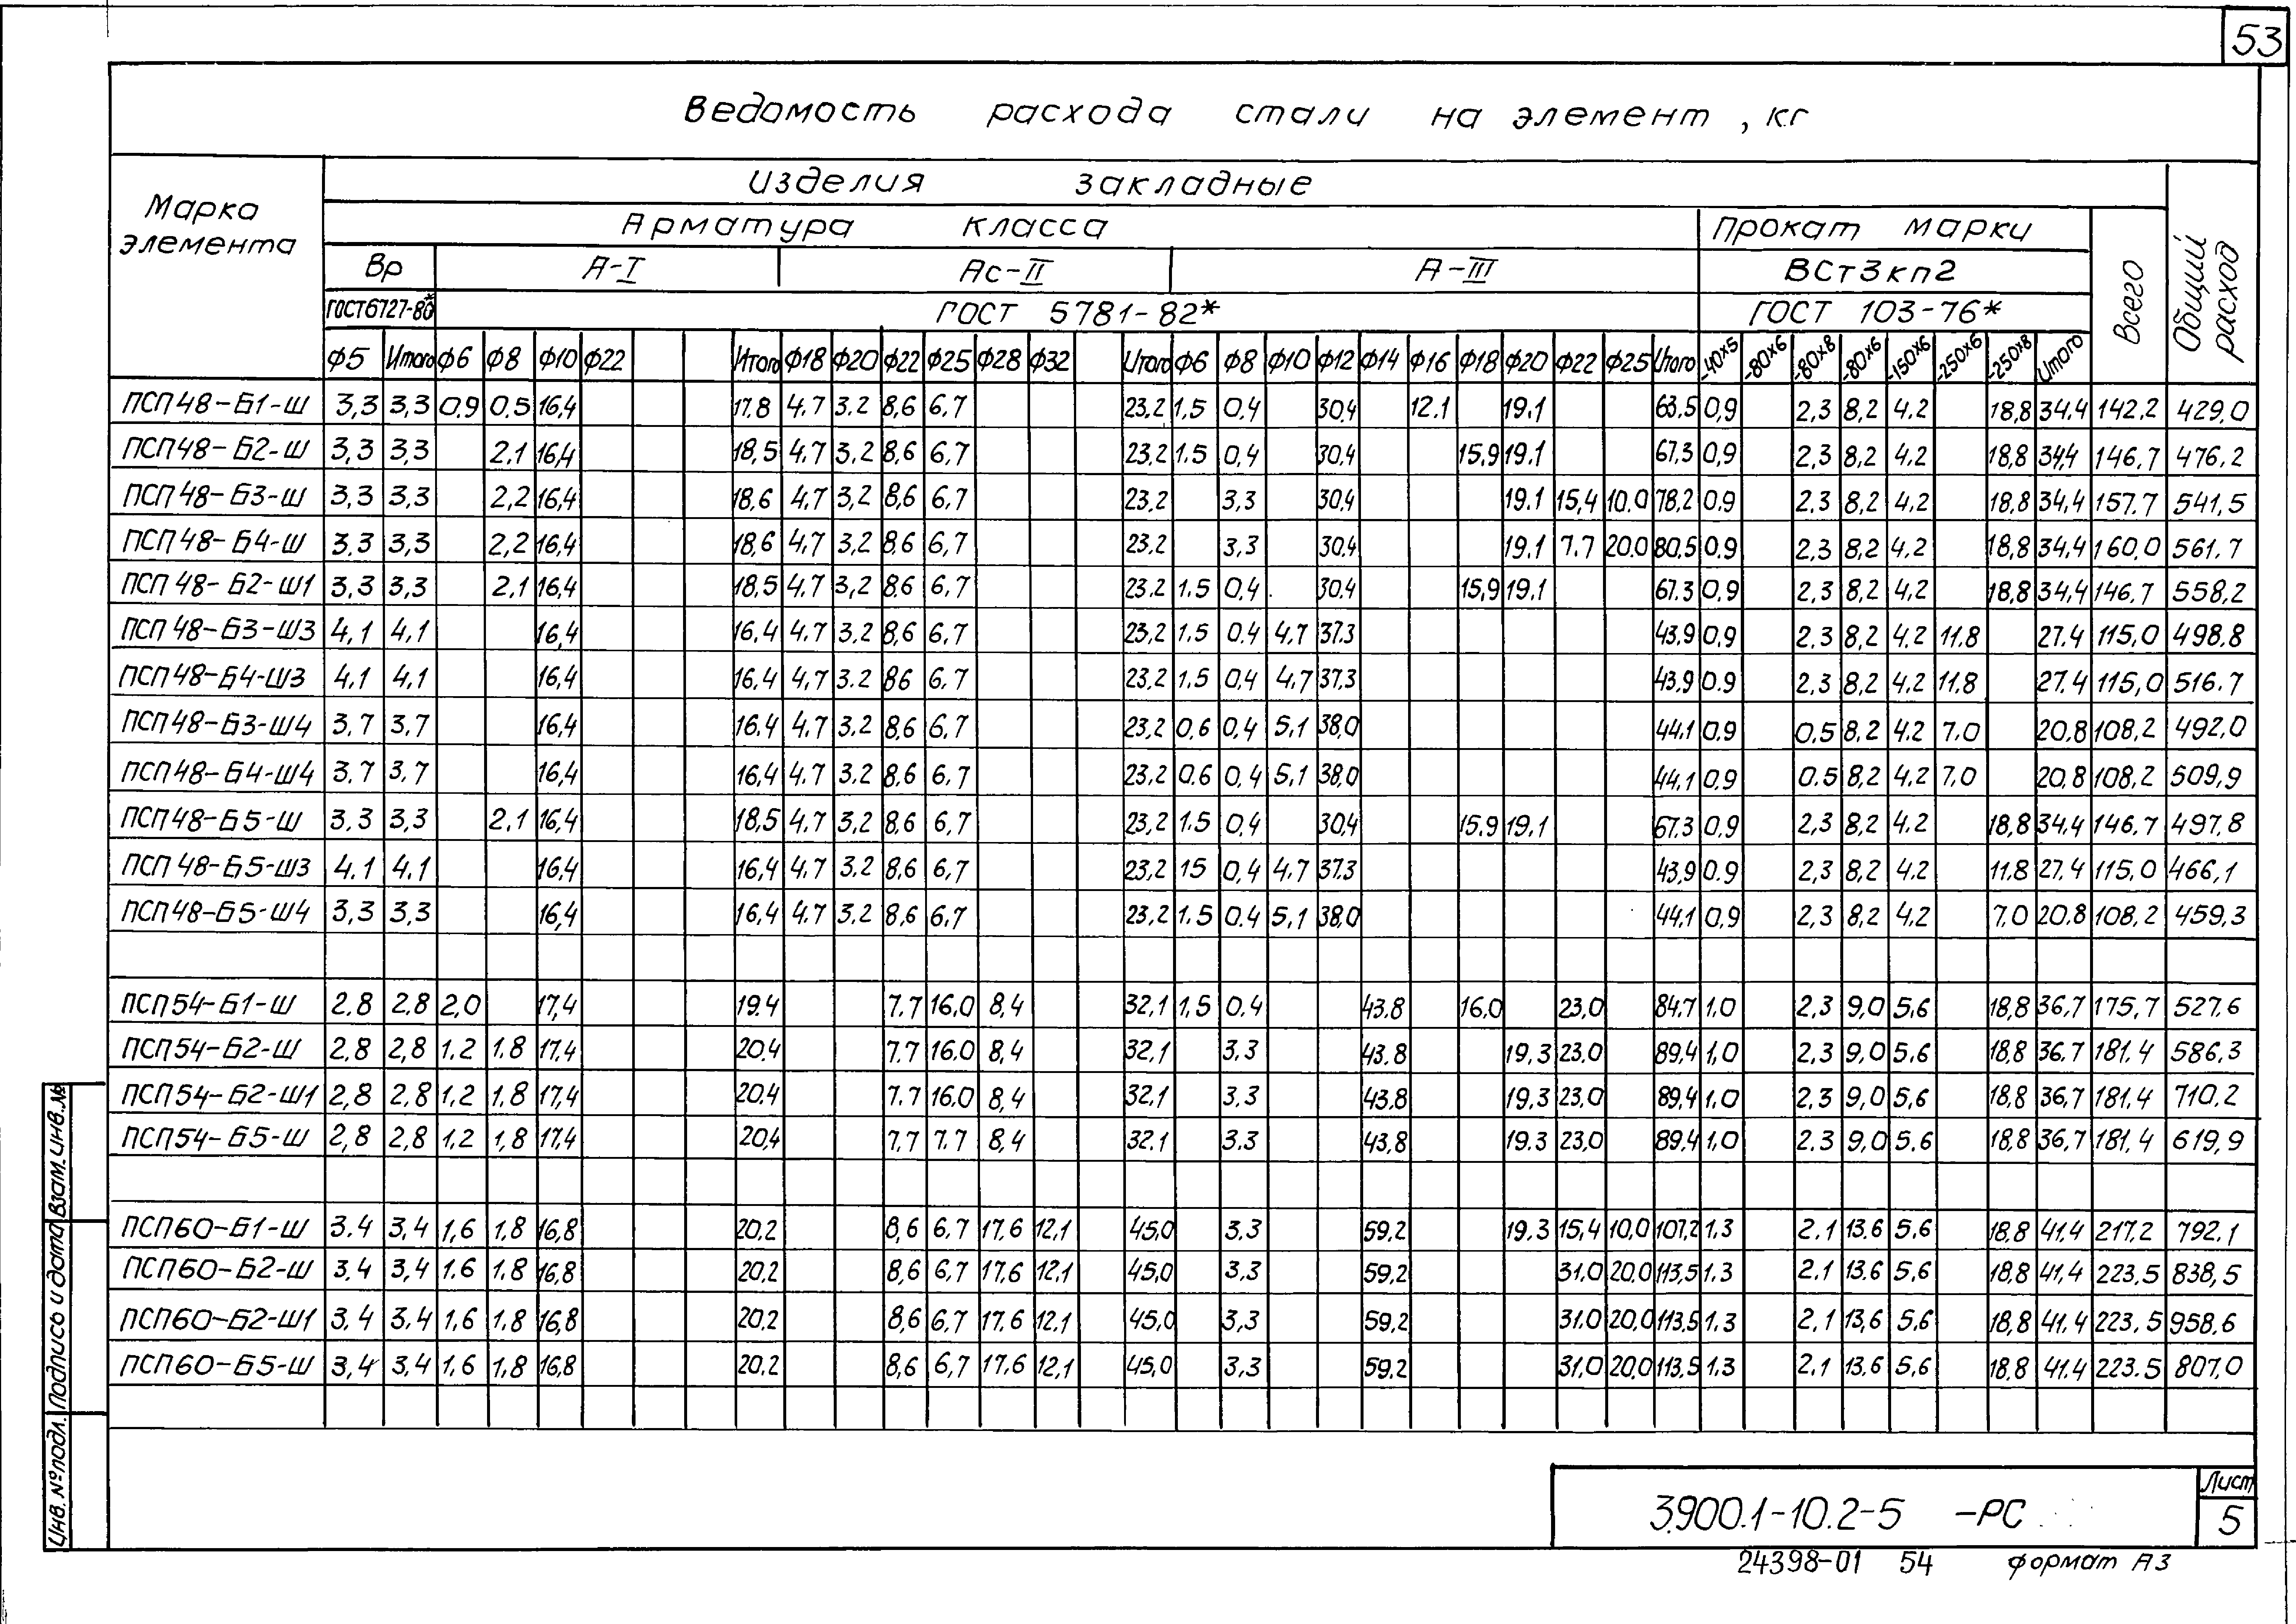 53
Ведомость расхода стали на элемент, кг
Марка элемента
Изделия закладные
Общий расход
Арматура класса
Прокат марки
Всего
Вр А-I Ас-II А-III ВСт3кп2
ГОСТ6727-80* ГОСТ 5781-82* ГОСТ 103-76*
Ф5 Итого Ф6 Ф8 Ф10 Ф22 Итого Ф18 Ф20 Ф22 Ф25 Ф28 Ф32 Итого Ф6 Ф8 Ф10 Ф12 Ф14 Ф16 Ф18 Ф20 Ф22 Ф25 Итого -40×5 -80×6 -80×8 -80×6 -150×6 -250×6 -250×8 Итого
ПСП48-Б1-Ш 3,3 3,3 0,9 0,5 16,4 17.8 4,7 3,2 8,6 6,7 23,2 1,5 0,4 30,4 12.1 19.1 63.5 0,9 2,3 8,2 4,2 18,8 34,4 142,2 429,0
ПСП48-Б2-Ш 3,3 3,3 2,1 16,4 18,5 4,7 3,2 8,6 6,7 23,2 1.5 0,4 30.4 15.9 19.1 67,3 0,9 2,3 8,2 4,2 18,8 34,4 146,7 476,2
ПСП48-Б3-Ш 3,3 3,3 2,2 16,4 18,6 4,7 3,2 8,6 6,7 23,2 3,3 30,4 19.1 15,4 10.0 78,2 0.9 2,3 8,2 4,2 18,8 34,4 157.7 541,5
ПСП48-Б4-Ш 3,3 3,3 2,2 16,4 18,6 4,7 3,2 8,6 6,7 23,2 3,3 30,4 19.1 7.7 20.0 80,5 0.9 2,3 8,2 4,2 18,8 34,4 160,0 561.7
ПСП48-Б2-Ш1 3,3 3,3 2,1 16,4 18,5 4.7 3,2 8,6 6,7 23,2 1.5 0,4 30,4 15,9 19.1 67.3 0,9 2,3 8,2 4,2 18,8 34,4 146,7 558,2
ПСП48-Б3-Ш3 4,1 4,1 16,4 16,4 4.7 3,2 8,6 6,7 23,2 1.5 0,4 4,7 37.3 43.9 0,9 2,3 8,2 4,2 11.8 27.4 115,0 498.8
ПСП48-Б4-Ш3 4,1 4,1 16,4 16.4 4,7 3.2 86 6,7 23,2 1.5 0,4 4,7 37,3 43.9 0.9 2,3 8,2 4,2 11.8 27.4 115,0 516.7
ПСП48-Б3-Ш4 3,7 3,7 16,4 16.4 4.7 3.2 8,6 6,7 23,2 0,6 0,4 5,1 38,0 44.1 0.9 0.5 8,2 4,2 7,0 20.8 108,2 492,0
ПСП48-Б4-Ш4 3,7 3,7 16,4 16,4 4.7 3,2 8,6 6,7 23,2 0.6 0,4 5,1 38,0 44,1 0,9 0.5 8,2 4,2 7,0 20,8 108,2 509,9
ПСП48-Б5-Ш 3,3 3,3 2,1 16,4 18,5 4.7 3,2 8,6 6,7 23,2 1.5 0,4 30,4 15.9 19.1 67.3 0.9 2,3 8,2 4,2 18,8 34,4 146,7 497,8
ПСП48-Б5-Ш3 4,1 4,1 16,4 16,4 4,7 3,2 8,6 6,7 23,2 15 0,4 4,7 37.3 43,9 0.9 2,3 8,2 4,2 11.8 27,4 115,0 466,1
ПСП48-Б5-Ш4 3,3 3,3 16,4 16,4 4.7 3,2 8,6 6,7 23,2 1.5 0.4 5,1 38,0 44,1 0,9 2,3 8,2 4,2 7,0 20.8 108,2 459,3
ПСП54-Б1-Ш 2,8 2,8 2,0 17,4 19.4 7.7 16,0 8,4 32,1 1,5 0,4 43.8 16,0 23,0 84.7 1.0 2,3 9,0 5,6 18,8 36,7 175,7 527,6
ПСП54-Б2-Ш 2,8 2,8 1,2 1,8 17,4 20,4 7.7 16.0 8,4 32,1 3,3 43.8 19,3 23,0 89,4 1,0 2,3 9,0 5,6 18,8 36.7 181.4 586,3
ПСП54-Б2-Ш1 2,8 2,8 1,2 1,8 17,4 20,4 7.7 16.0 8,4 32,1 3,3 43,8 19,3 23,0 89,4 1,0 2,3 9,0 5,6 18,8 36,7 181,4 710.2
ПСП54-Б5-Ш 2,8 2,8 1,2 1,8 17,4 20,4 7,7 7.7 8,4 32.1 3.3 43,8 19.3 23,0 89,4 1,0 2,3 9,0 5.6 18,8 36,7 181,4 619,9
ПСП60-Б1-Ш 3.4 3,4 1,6 1,8 16,8 20,2 8,6 6,7 17,6 12,1 45,0 3.3 59,2 19.3 15,4 10,0 107,2 1.3 2.1 13.6 5,6 18,8 41.4 217,2 792,1
ПСП60-Б2-Ш 3.4 3,4 1.6 1.8 16,8 20,2 8,6 6,7 17,6 12,1 45,0 3,3 59,2 31.0 20.0 113,5 1.3 2.1 13.6 5,6 18,8 41,4 223,5 838,5
ПСП60-Б2-Ш1 3,4 3,4 1,6 1,8 16,8 20,2 8,6 6,7 17,6 12,1 45,0 3,3 59,2 31.0 20,0 113,5 1.3 2,1 13,6 5,6 18,8 41.4 223.5 958,6
ПСП60-Б5-Ш 3,4 3,4 1,6 1,8 16,8 20,2 8,6 6,7 17,6 12,1 45,0 3,3 59.2 31,0 20,0 113,5 1.3 2,1 13,6 5,6 18,8 41.4 223.5 807,0
Инв. № подл. Подпись и дата Взам. инв. №
3.900.1-10.2-5 -РС
Лист
5
24398-01 54 формат А3